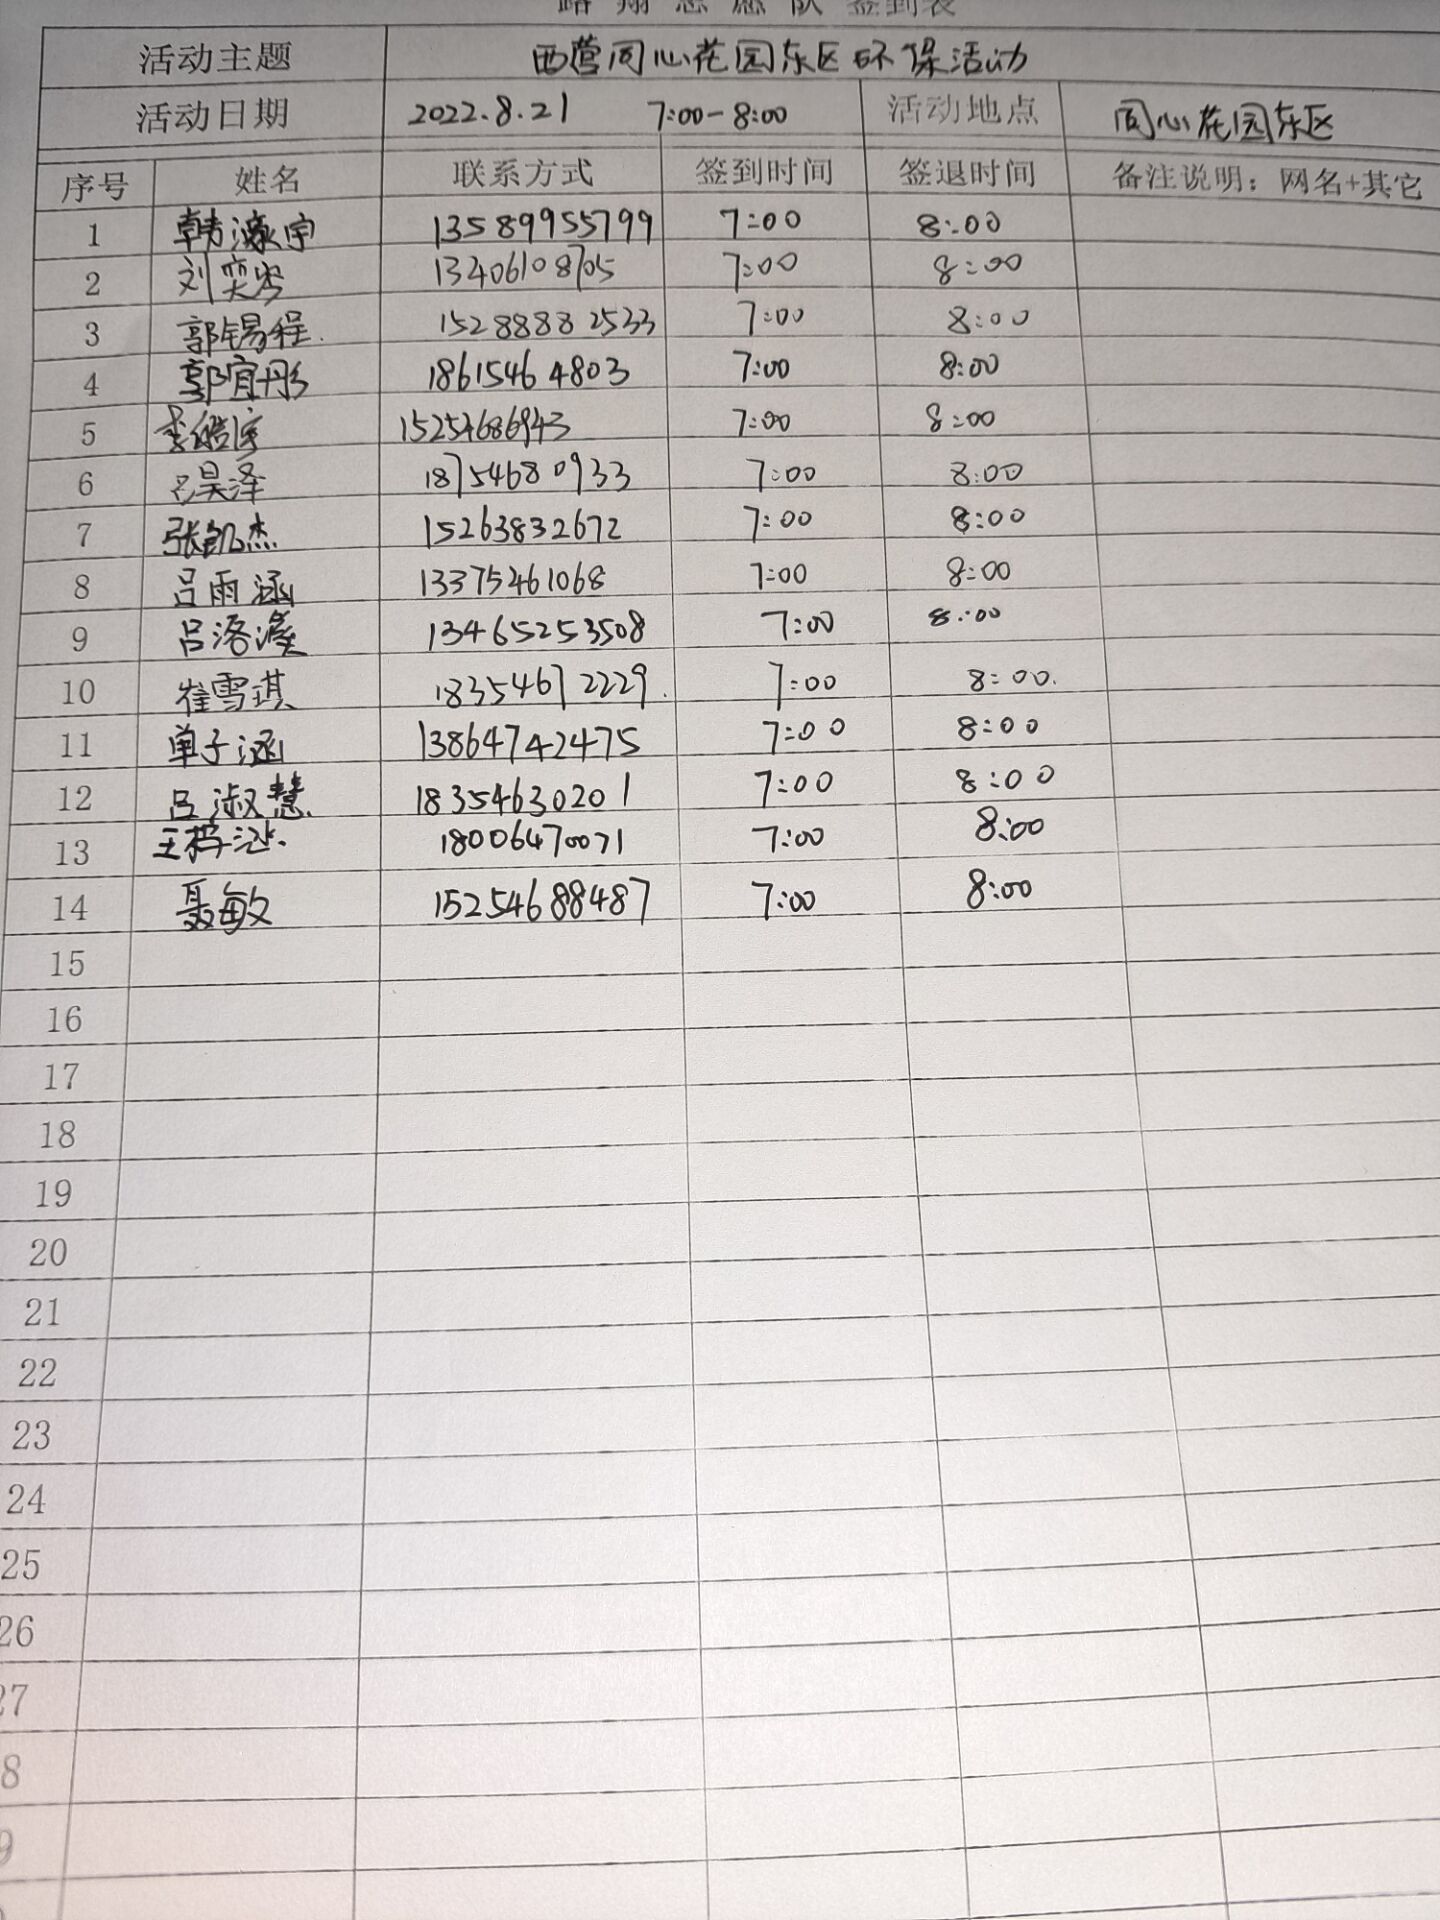 路翔志愿队签到表
活动主题 西营同心花园东区环保活动
活动日期 2022.8.21 7:00-8:00 活动地点 同心花园东区
序号 姓名 联系方式 签到时间 签退时间 备注说明：网名+其它
1 韩濠宇 13589955799 7:00 8:00
2 刘奕岑 13406108705 7:00 8:00
3 郭锡程 15288882533 7:00 8:00
4 郭宜彤 18615464803 7:00 8:00
5 李皓宇 15254686943 7:00 8:00
6 吕昊泽 18754680933 7:00 8:00
7 张凯杰 15263832672 7:00 8:00
8 吕雨涵 13375461068 7:00 8:00
9 吕洛 13465253508 7:00 8:00
10 崔雪琪 18354672229. 7:00 8:00.
11 单子涵 13864742475 7:00 8:00
12 吕淑慧 18354630201 7:00 8:00
13 王 18006470071 7:00 8:00
14 聂敏 15254688487 7:00 8:00
15
16
17
18
19
20
21
22
23
24
25
26
27
8
9